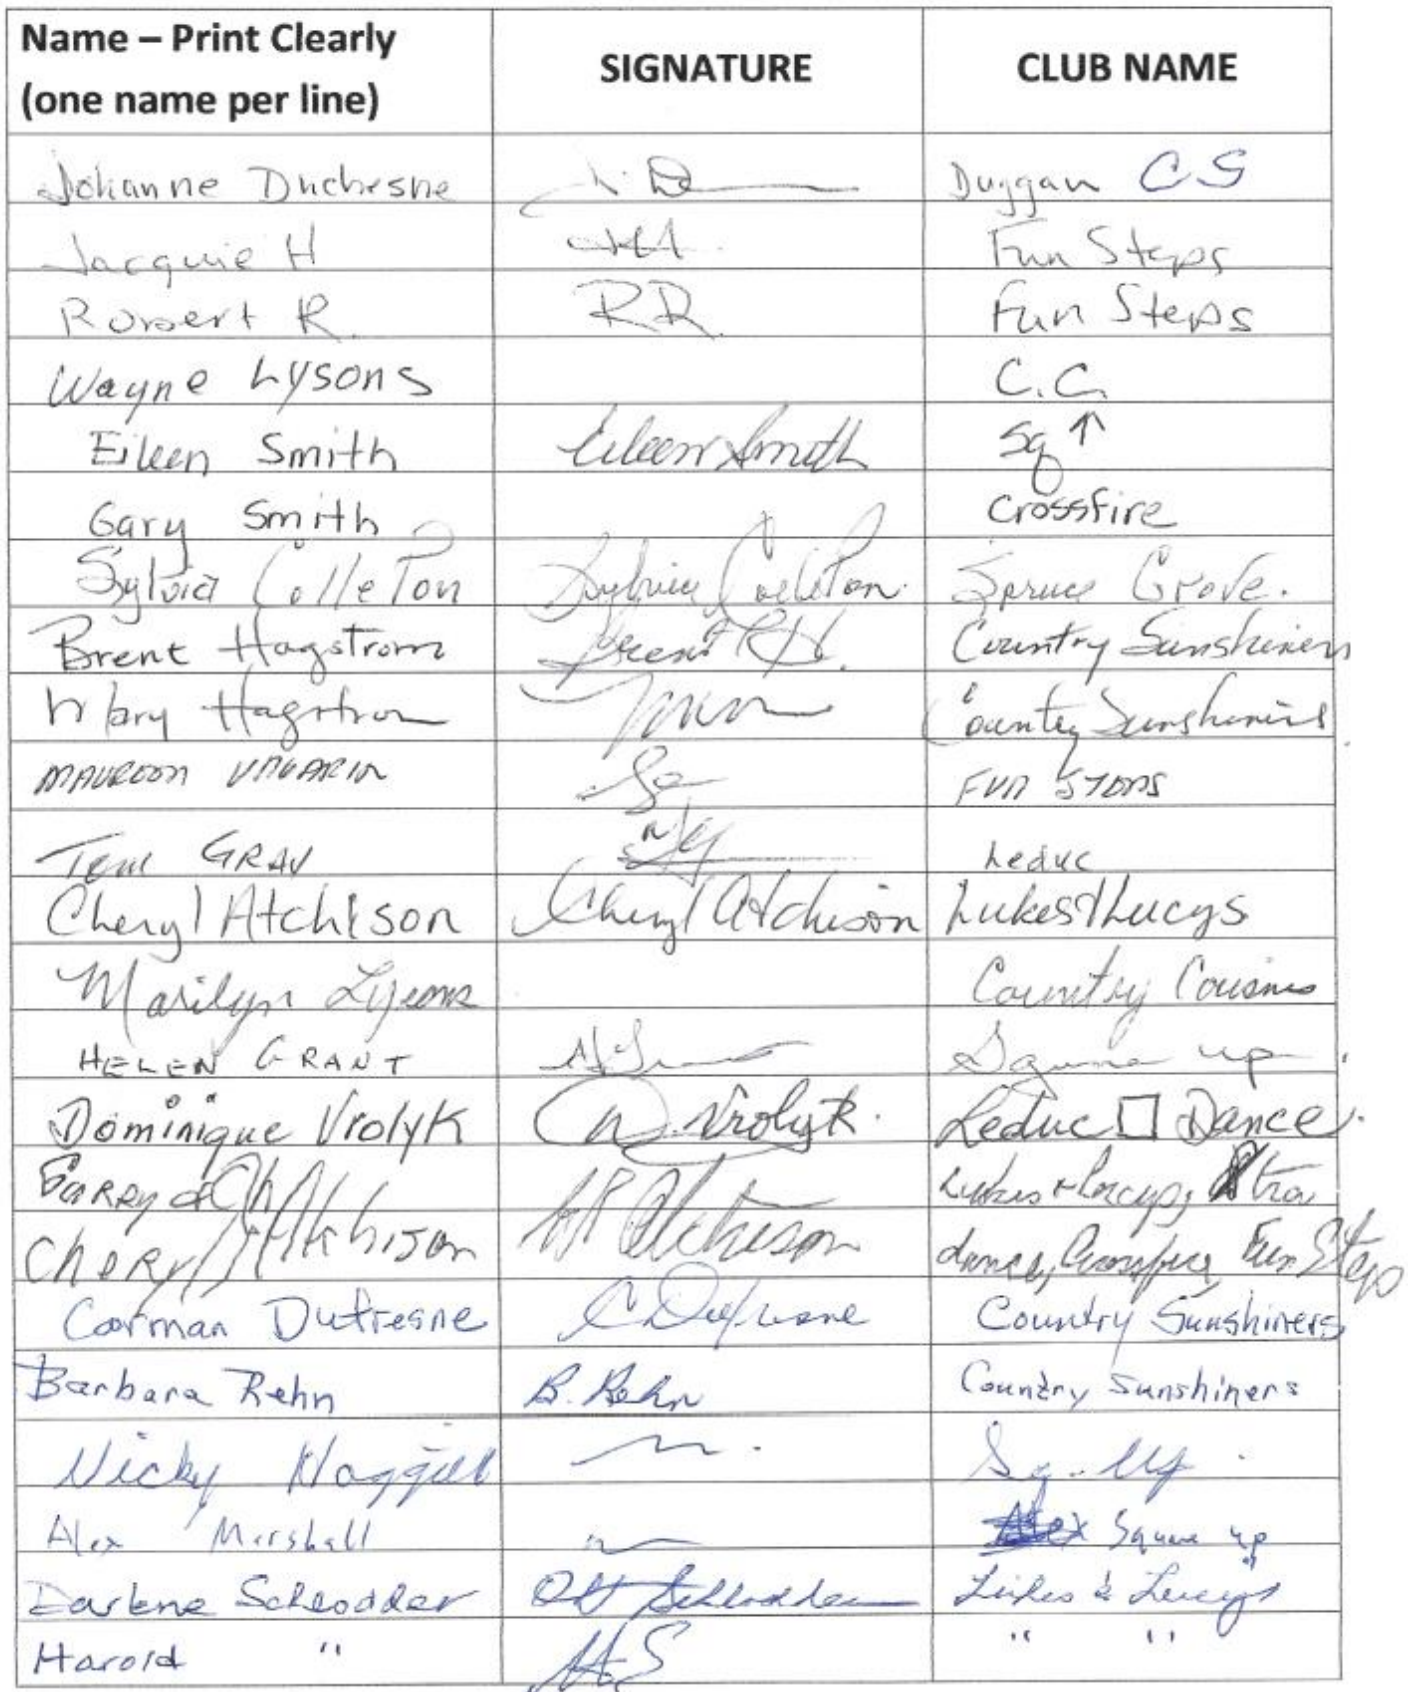 Name – Print Clearly
(one name per line) SIGNATURE CLUB NAME
Johanne Duchesne J. D Duggan CS
Jacquie H JH Fun Steps
Robert R. RR. Fun Steps
Wayne Lysons C.C.
Eileen Smith Eileen Smith Sq ↑
Gary Smith Crossfire
Sylvia Colleton Sylvia Colleton. Spruce Grove.
Brent Hagstrom Brent H. Country Sunshiners
Mary Hagstrom Country Sunshiners
MAUREEN UNGARIN FUN STEPS
Tom GRAY Leduc
Cheryl Atchison Cheryl Atchison Lukes & Lucys
Marilyn Lysons Country Cousins
HELEN GRANT Square up.
Dominique Vrolyk D. Vrolyk. Leduc □ Dance.
GARRY & Lukes & Lucys, Xtra
CHERYL Atchison Atchison dance, Crossfire, Fun Steps
Carman Dufresne C Dufresne Country Sunshiners
Barbara Rehn B. Rehn Country Sunshiners
Nicky Sq. Up.
Alex Marshall Alex Square up
Darlene Schrodder Schrodder Lukes & Lucys
Harold " H.S " "